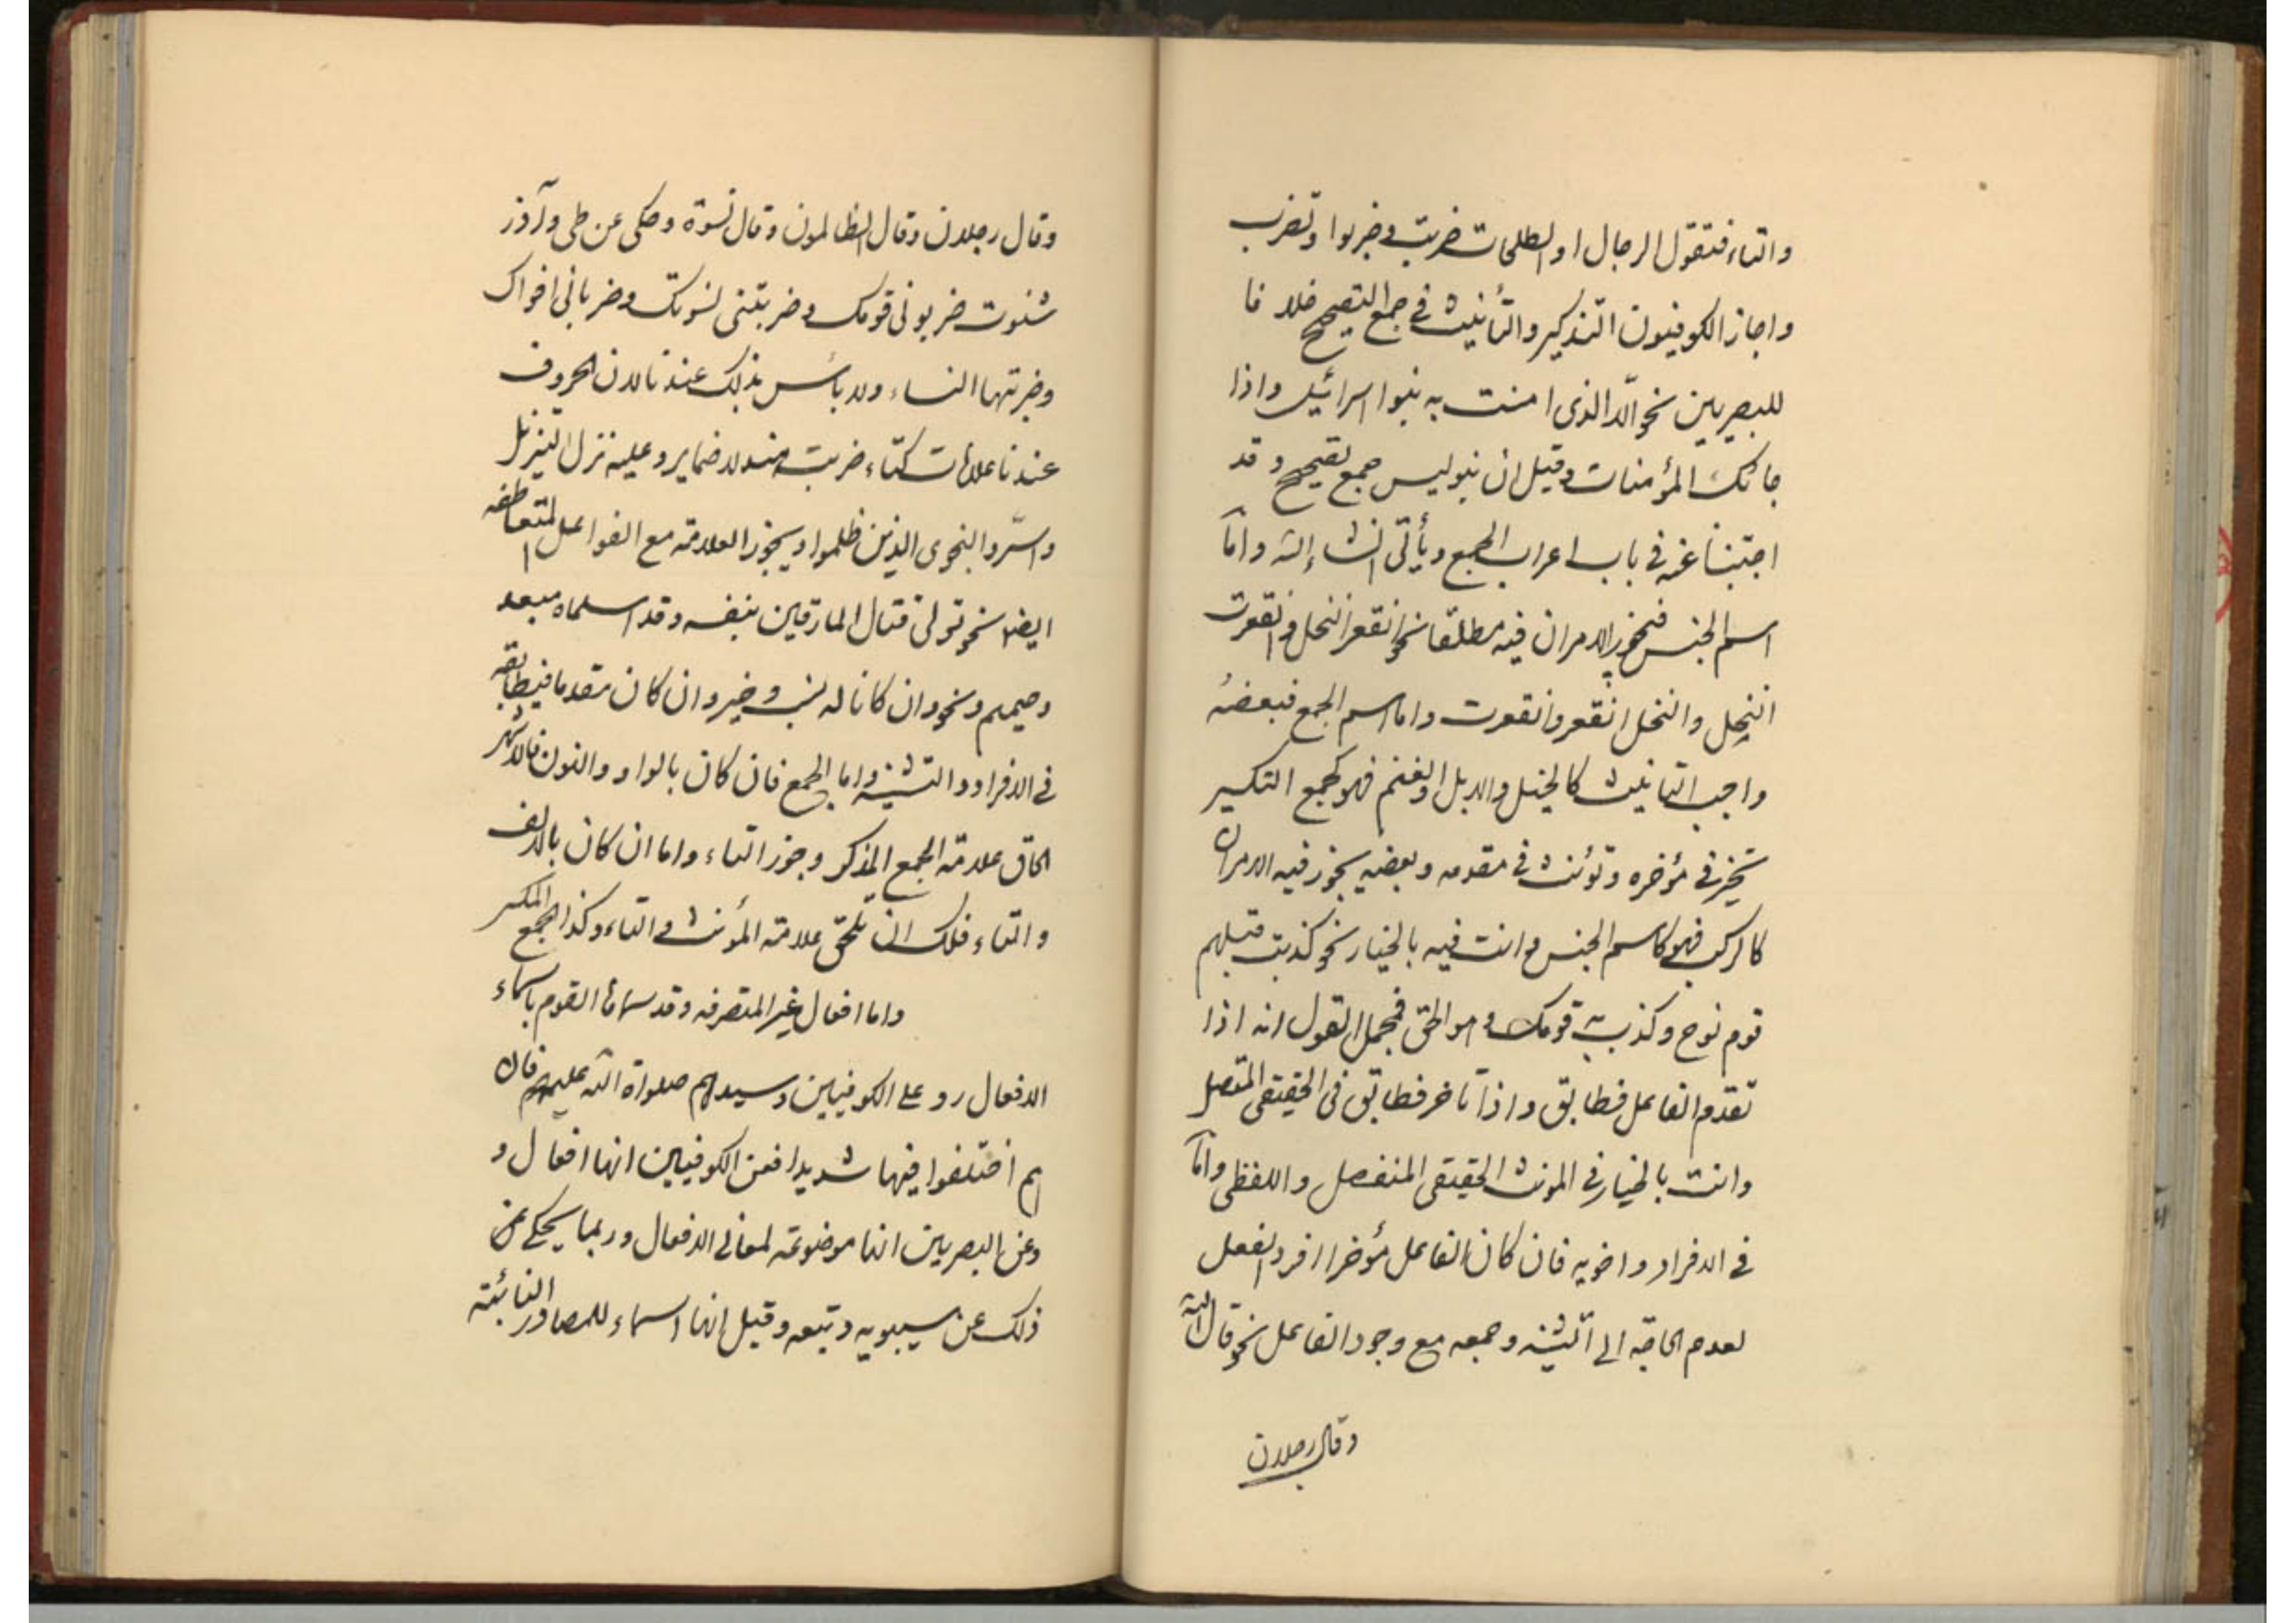 والتاء فتقول الرجال او الطلحات ضربت وضربوا وتضرب
واجاز الكوفيون التذكير والتأنيث في جمع التصحيح خلافا
للبصريين نحو الّا الذى امنت به بنوا اسرائيل واذا
جائك المؤمنات وقيل ان بنو ليس جمع تصحيح وقد
اجبنا عنه في باب اعراب الجمع ويأتى انشاء الله وامّا
اسم الجنس فيجوز الامران فيه مطلقا نحو انقعر النخل وانقعرت
النخل والنخل انقعر وانقعرت واما اسم الجمع فبعضهُ
واجب التانيث كالخيل والابل والغنم فهو كجمع التكسير
تخير في مؤخره وتؤنث في مقدمه وبعضه يجوز فيه الامران
كالركب فهو كاسم الجنس وانت فيه بالخيار نحو كذبت قبلهم
قوم نوح وكذب به قومك وهو الحق فمجمل القول انه اذا
تقدم الفاعل فطابق واذا تأخر فطابق في الحقيقى المتصل
وانت بالخيار في المونث الحقيقى المنفصل واللفظى وامّا
في الافراد واخويه فان كان الفاعل مؤخرا افرد الفعل
لعدم الحاجة الى تثنيته وجمعه مع وجود الفاعل نحو قال الله
وقال رجلان
وقال رجلان وقال الظالمون وقال نسوة وحكى عن طى وآزد
شنوت ضربونى قومك وضربتنى نسوتك وضربانى اخواك
وضربتها النساء ولا بأس بذلك عندنا لان الحروف
عندنا علامات كتاء ضربت هند لا ضماير وعليه نزل التنزيل
واسرّوا النجوى الذين ظلموا ويجوز العلامة مع الفواعل المتعاطفه
ايضا نحو تولى قتال المارقين بنفسه وقد اسلماه مبعد
وحميم ونحو وان كانا له نسب وخير وان كان مقدما فيطابقه
في الافراد والتثنيه واما الجمع فان كان بالواو والنون فالاشهر
الحاق علامة الجمع المذكر وجوز التاء واما ان كان بالالف
والتاء فلك ان تلحق علامة المؤنث والتاء وكذا الجمع المكسر
واما افعال غير المتصرفه وقد سماها القوم باسماء
الافعال رد على الكوفيين وسيدهم صلواة الله عليهم فان
هم اختلفوا فيها شديدا فعن الكوفيين انها افعال و
وعن البصريين انها موضوعة لمعانى الافعال وربما يحكى عن
ذلك عن سيبويه وتبعه وقيل انها اسماء للمصادر النائبة